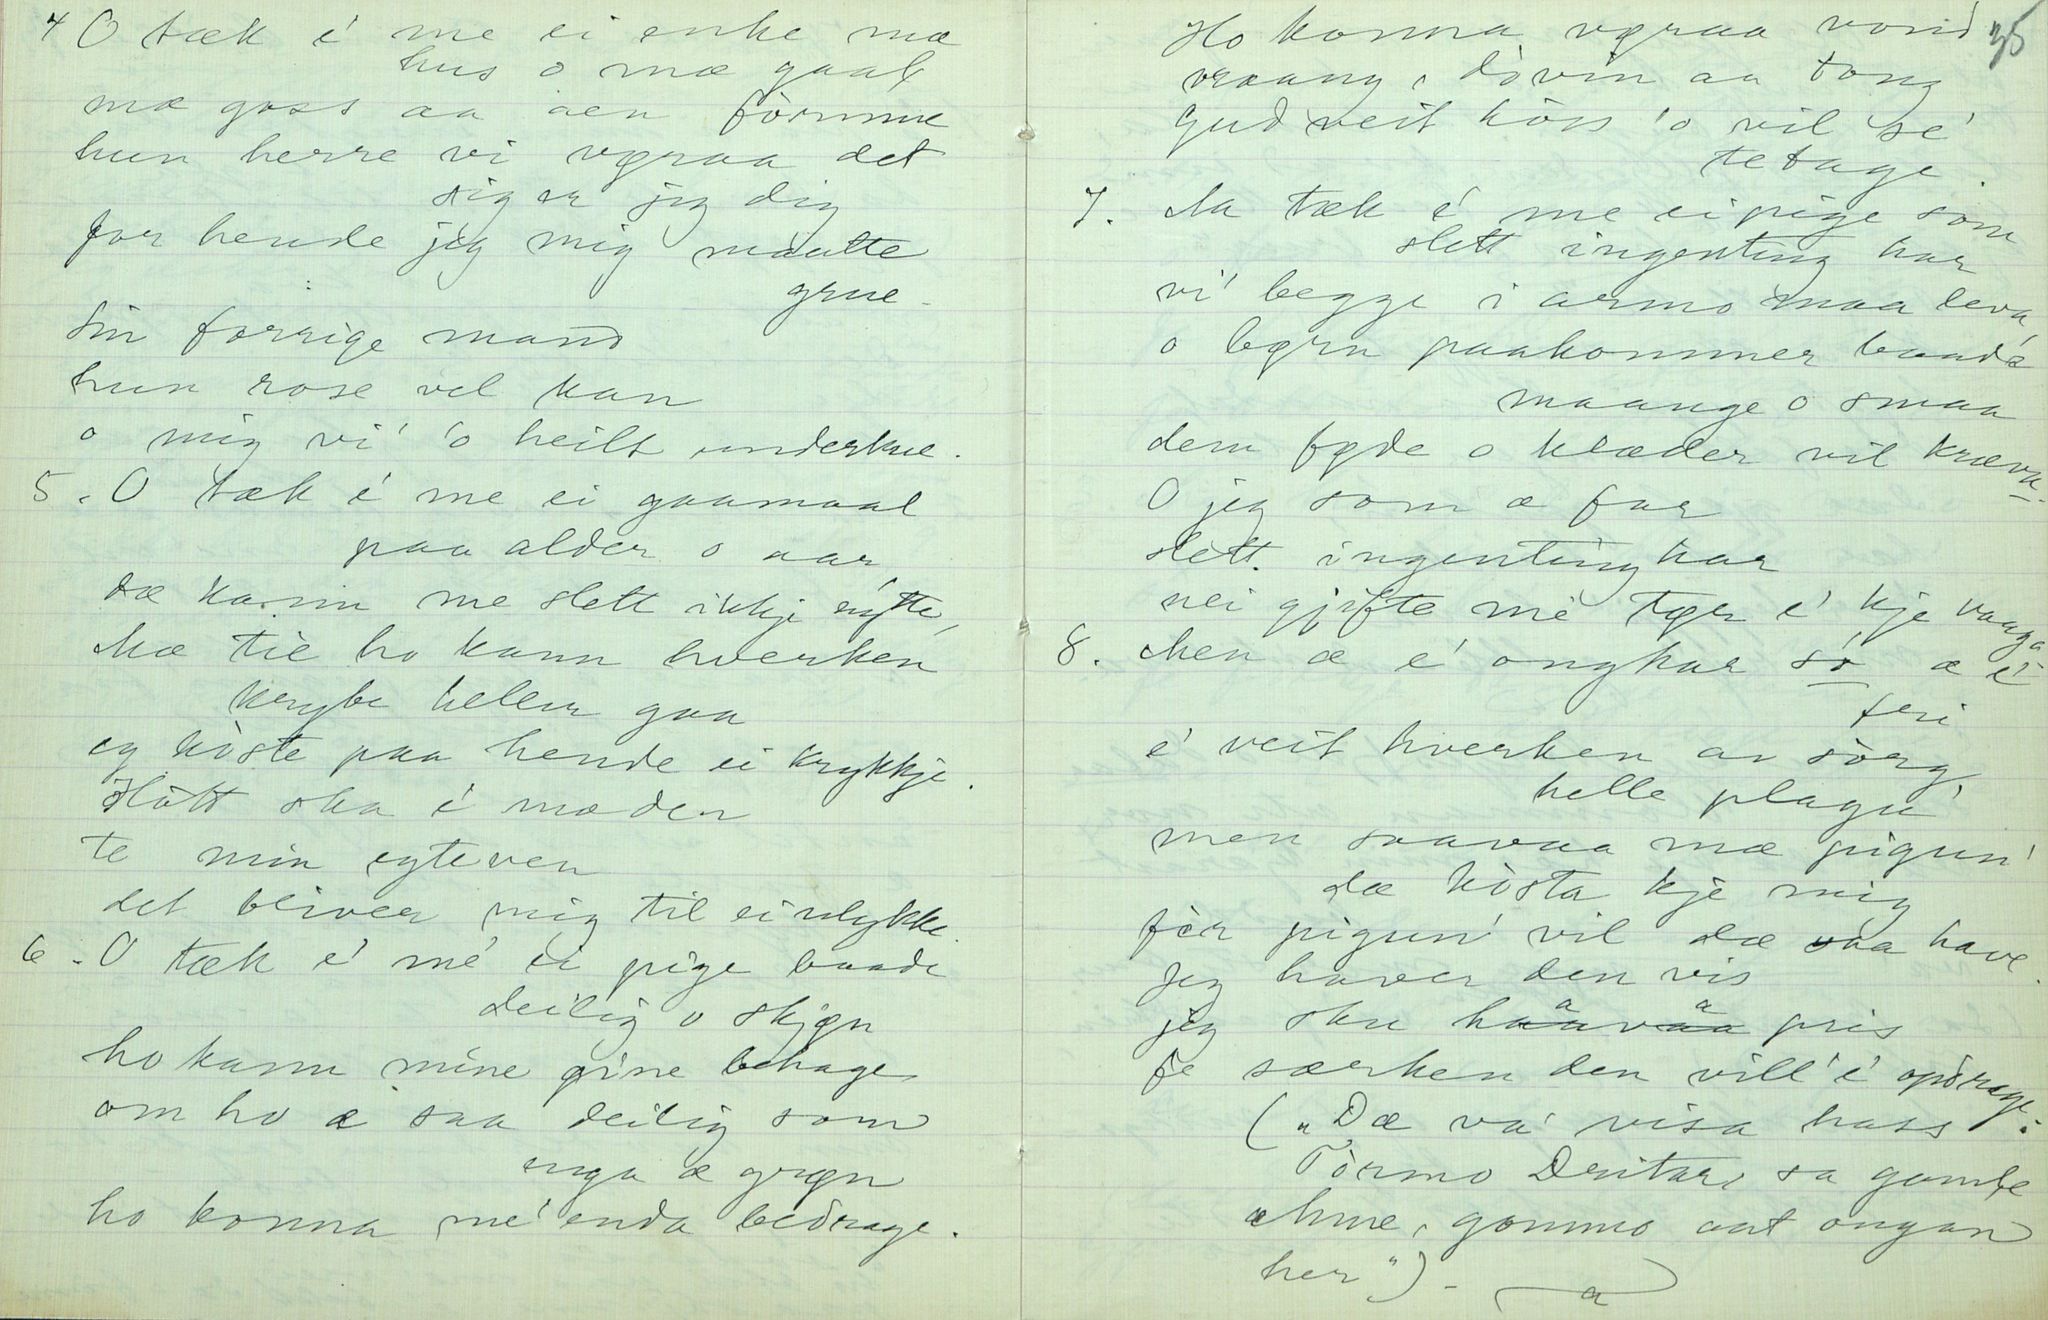 4 O tæk é me ei enke mæ
hus o mæ gaal
mæ goss aa aen förmue
hun herre vi vøraa det
siger jeg dig
for hende jeg mig maatte
grue.
Sin forrige mand
hun rose vel kan
o mig vi' 'o heilt underkue.
5. O tæk é me ei gaamaal
paa alder o aar
dæ kann me slett ikkje nÿtte,
Mæ tie ho kann hverken
krybe heller gaa
eg köste paa hende ei krykkje.
Slött ska é mæder
te min egteven
det bliver mig til ei ulykke.
6. O tæk é mé ei pige baade
deilig o skjøn
ho kann mine øine behage
om ho æ saa deilig som
enga æ grøn
ho konna mé enda bedrage.
35
Ho konna vøraa vond
vraang, dövin aa tong
Gud veit höss 'o vil sé
tetage.
7. Aa tæk é me ei pige som
slett ingenting har
vi begge i armo maa leva,
o børn paakommer baade
maange o smaa
dem føde o klæder vil kræva.
O jeg som æ far
slett ingenting har
nei gjifte mé tør é kje vaaga
8. Men æ é ongkar sö æ é
fri
é veit hverken av sörg,
helle plagu'
men saavaa mæ pigun'
dæ kösta kje mig
för pigun' vil dæ saa have.
Jeg haver den vis
jeg ska haavaa pris
fe særken den vill' é opdrage.
(„Dæ va' visa hass
Törmo Dritar, sa gamle
Ahne, gommo aat ongan
her") -